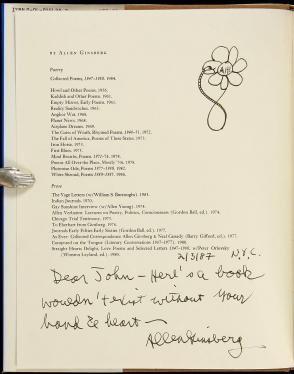 BY ALLEN GINSBERG
Poetry
Collected Poems, 1947-1980. 1984.
Howl and Other Poems. 1956.
Kaddish and Other Poems. 1961.
Empty Mirror, Early Poems. 1961.
Reality Sandwiches. 1963.
Angkor Wat. 1968.
Planet News. 1968.
Airplane Dreams. 1969.
The Gates of Wrath, Rhymed Poems 1948-51. 1972.
The Fall of America, Poems of These States. 1973.
Iron Horse. 1973.
First Blues. 1975.
Mind Breaths, Poems 1972-76. 1978.
Poems All Over the Place, Mostly '70s. 1978.
Plutonian Ode, Poems 1977-1980. 1982.
White Shroud, Poems 1980-1985. 1986.
Prose
The Yage Letters (w/William S. Burroughs). 1963.
Indian Journals. 1970.
Gay Sunshine Interview (w/Allen Young). 1974.
Allen Verbatim: Lectures on Poetry, Politics, Consciousness (Gordon Ball, ed.). 1974.
Chicago Trial Testimony. 1975.
To Eberhart from Ginsberg. 1976.
Journals Early Fifties Early Sixties (Gordon Ball, ed.). 1977.
As Ever: Collected Correspondence Allen Ginsberg & Neal Cassady (Barry Gifford, ed.). 1977.
Composed on the Tongue (Literary Conversations 1967-1977). 1980.
Straight Hearts Delight, Love Poems and Selected Letters 1947-1980, w/Peter Orlovsky
(Winston Leyland, ed.). 1980.
2/3/87 N.Y.C.
Dear John – Here's a book
wouldn't exist without your
hand & heart –
Allen Ginsberg